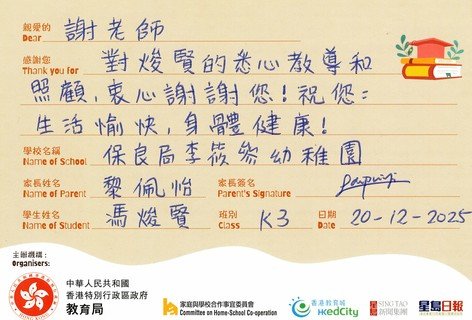 親愛的 Dear 謝老師
感謝您 Thank you for 對焌賢的悉心教導和
照顧，衷心謝謝您！祝您：
生活愉快，身體健康！
學校名稱 Name of School 保良局李筱參幼稚園
家長姓名 Name of Parent 黎佩怡 家長簽名 Parent's Signature
學生姓名 Name of Student 馮焌賢 班別 Class K3 日期 Date 20-12-2025
主辦機構：
Organisers:
中華人民共和國
香港特別行政區政府
教育局
家庭與學校合作事宜委員會
Committee on Home-School Co-operation
香港教育城
HKEdCity
星島 SING TAO
新聞集團
星島日報